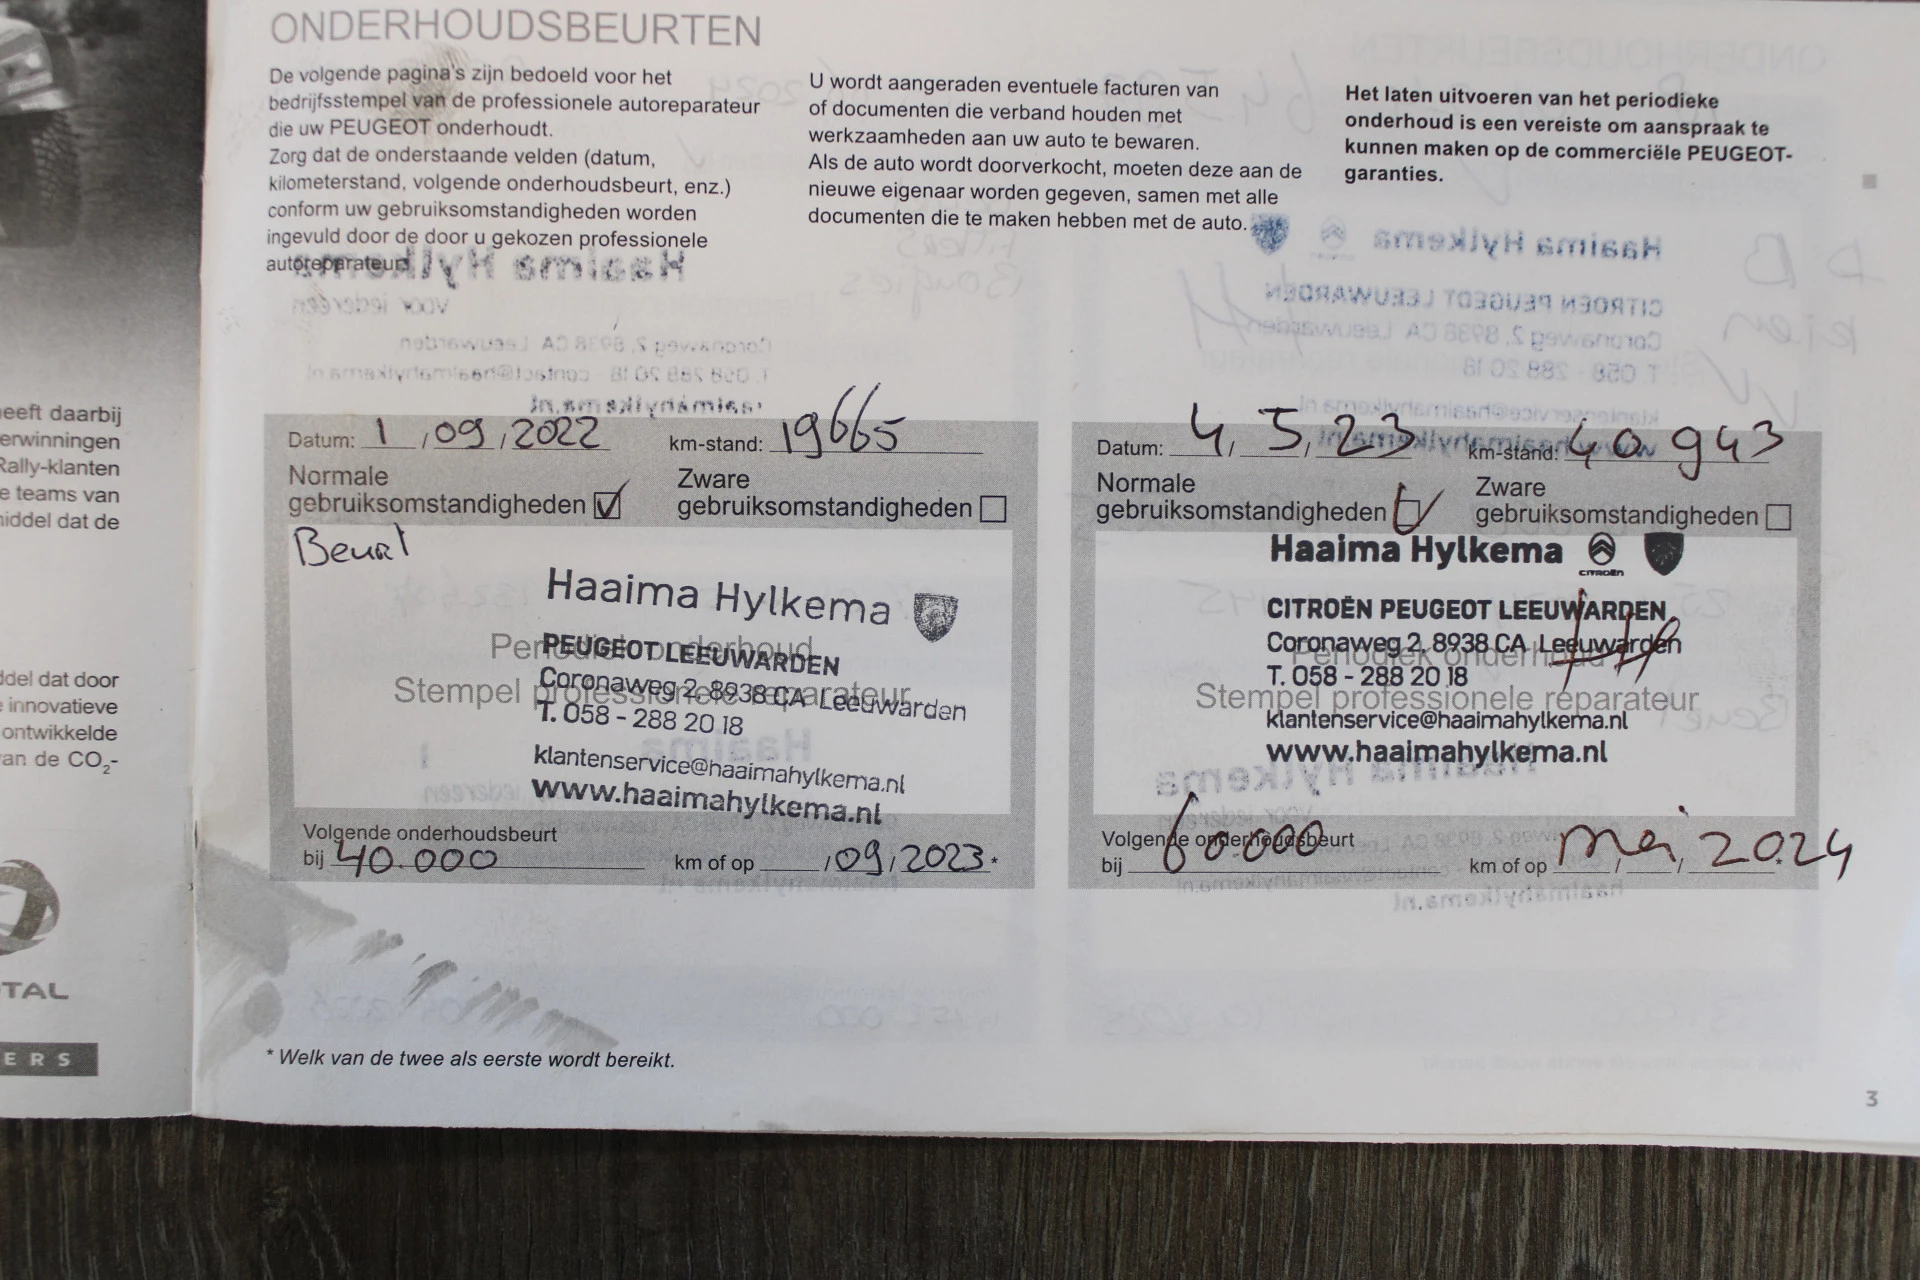 ONDERHOUDSBEURTEN
De volgende pagina's zijn bedoeld voor het
bedrijfsstempel van de professionele autoreparateur
die uw PEUGEOT onderhoudt.
Zorg dat de onderstaande velden (datum,
kilometerstand, volgende onderhoudsbeurt, enz.)
conform uw gebruiksomstandigheden worden
ingevuld door de door u gekozen professionele
autoreparateur.
U wordt aangeraden eventuele facturen van
of documenten die verband houden met
werkzaamheden aan uw auto te bewaren.
Als de auto wordt doorverkocht, moeten deze aan de
nieuwe eigenaar worden gegeven, samen met alle
documenten die te maken hebben met de auto.
Het laten uitvoeren van het periodieke
onderhoud is een vereiste om aanspraak te
kunnen maken op de commerciële PEUGEOT-
garanties.
eeft daarbij
erwinningen
Rally-klanten
e teams van
middel dat de
ddel dat door
innovatieve
ontwikkelde
an de CO2-
TAL
ERS
Datum: 1 / 09 / 2022 km-stand: 19665
Normale
gebruiksomstandigheden
Zware
gebruiksomstandigheden
Beurt
Haaima Hylkema
Periodiek onderhoud
PEUGEOT LEEUWARDEN
Stempel professionele reparateur
Coronaweg 2, 8938 CA Leeuwarden
T. 058 - 288 20 18
klantenservice@haaimahylkema.nl
www.haaimahylkema.nl
Volgende onderhoudsbeurt
bij 40.000 km of op / 09 / 2023 *
Datum: 4 / 5 / 23 km-stand: 40943
Normale
gebruiksomstandigheden
Zware
gebruiksomstandigheden
Haaima Hylkema
CITROËN
CITROËN PEUGEOT LEEUWARDEN
Coronaweg 2, 8938 CA Leeuwarden
Periodiek onderhoud
T. 058 - 288 20 18
Stempel professionele reparateur
klantenservice@haaimahylkema.nl
www.haaimahylkema.nl
Volgende onderhoudsbeurt
bij 60.000 km of op mei / / 2024 *
* Welk van de twee als eerste wordt bereikt.
3